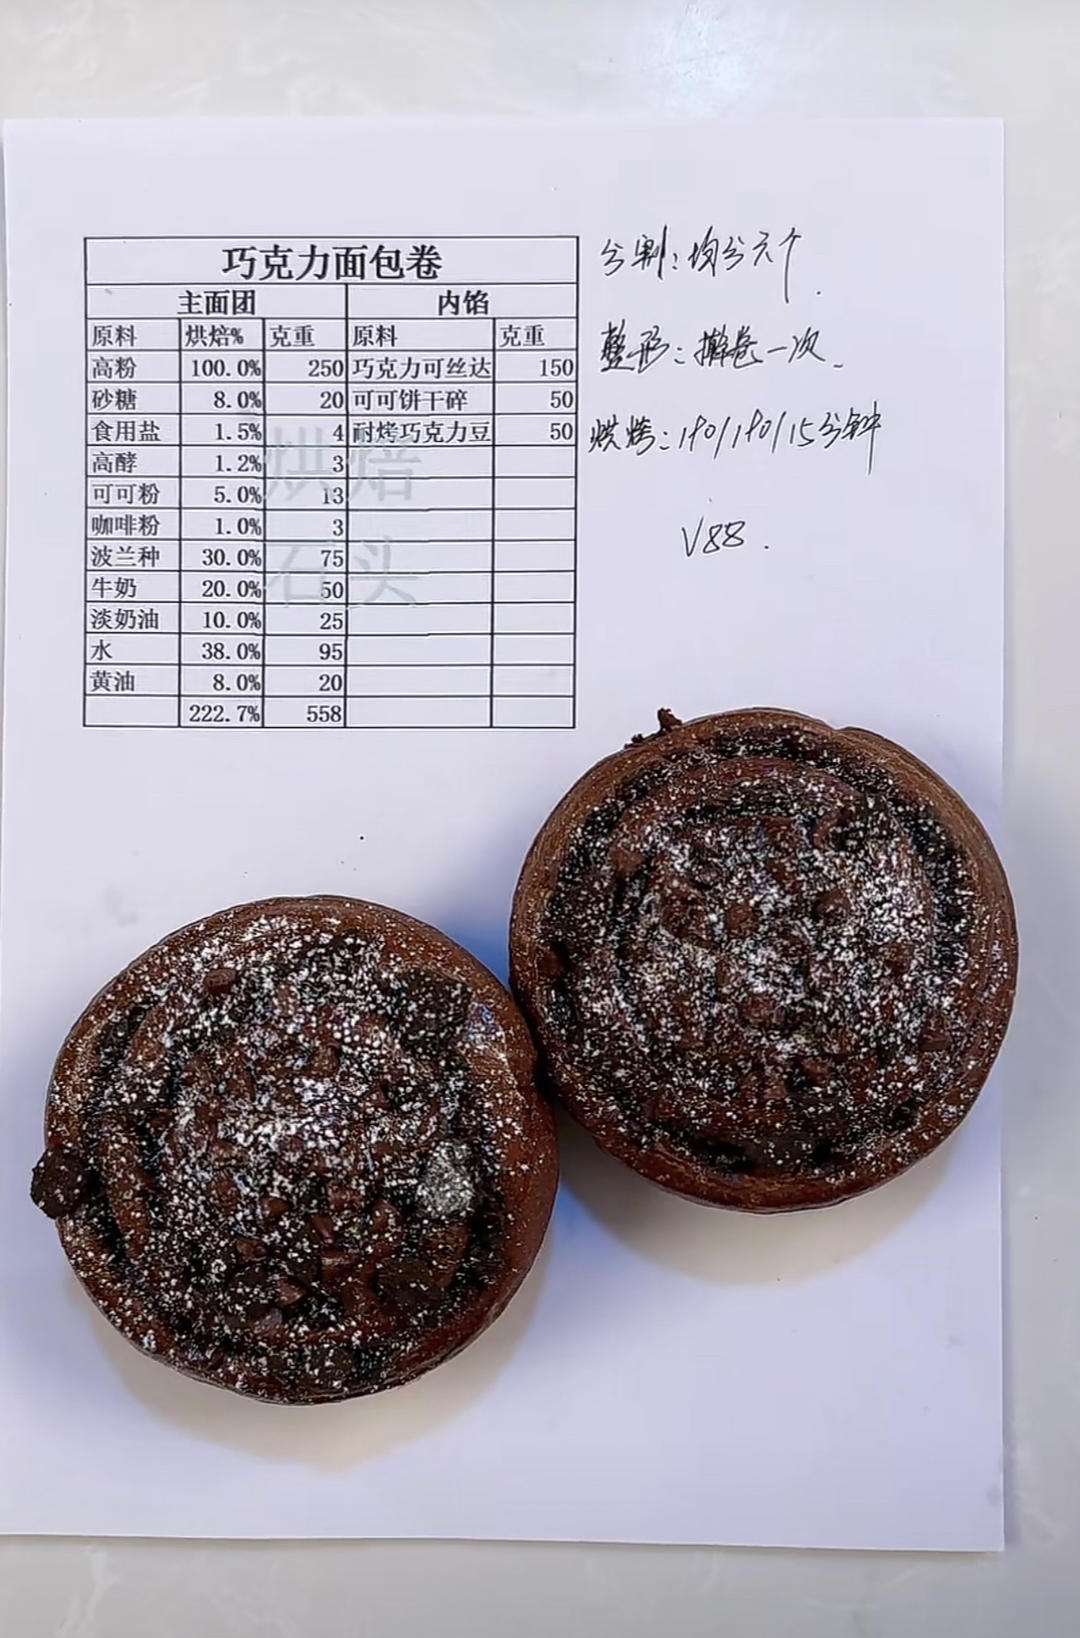 巧克力面包卷
主面团 内馅
原料 烘焙% 克重 原料 克重
高粉 100.0% 250 巧克力可丝达 150
砂糖 8.0% 20 可可饼干碎 50
食用盐 1.5% 4 耐烤巧克力豆 50
高酵 1.2% 3
可可粉 5.0% 13
咖啡粉 1.0% 3
波兰种 30.0% 75
牛奶 20.0% 50
淡奶油 10.0% 25
水 38.0% 95
黄油 8.0% 20
222.7% 558
烘焙
石头
分割：均分六个.
整形：擀卷一次.
烘烤：190/190/15分钟
V88.